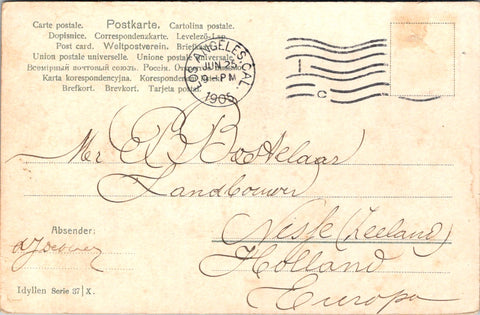 Carte postale. Postkarte. Cartolina postale.
Dopisnice. Correspondenzkarte. Levelező-Lap.
Post card. Weltpostverein. Briefkaart.
Union postale universelle. Unione postale universale.
Всемірный почтовый союзъ. Россія. Открытое письмо.
Karta korespondencyjna. Korespondenční lístek.
Brefkort. Brevkort. Tarjeta postal.
LOS ANGELES, CAL.
JUN 25
9 - PM
1905
I
C
Mr P. Bostelaar
Landbouwer
Nisse (Zeeland)
Absender:
Holland
Europa
Idyllen Serie 37 / X.